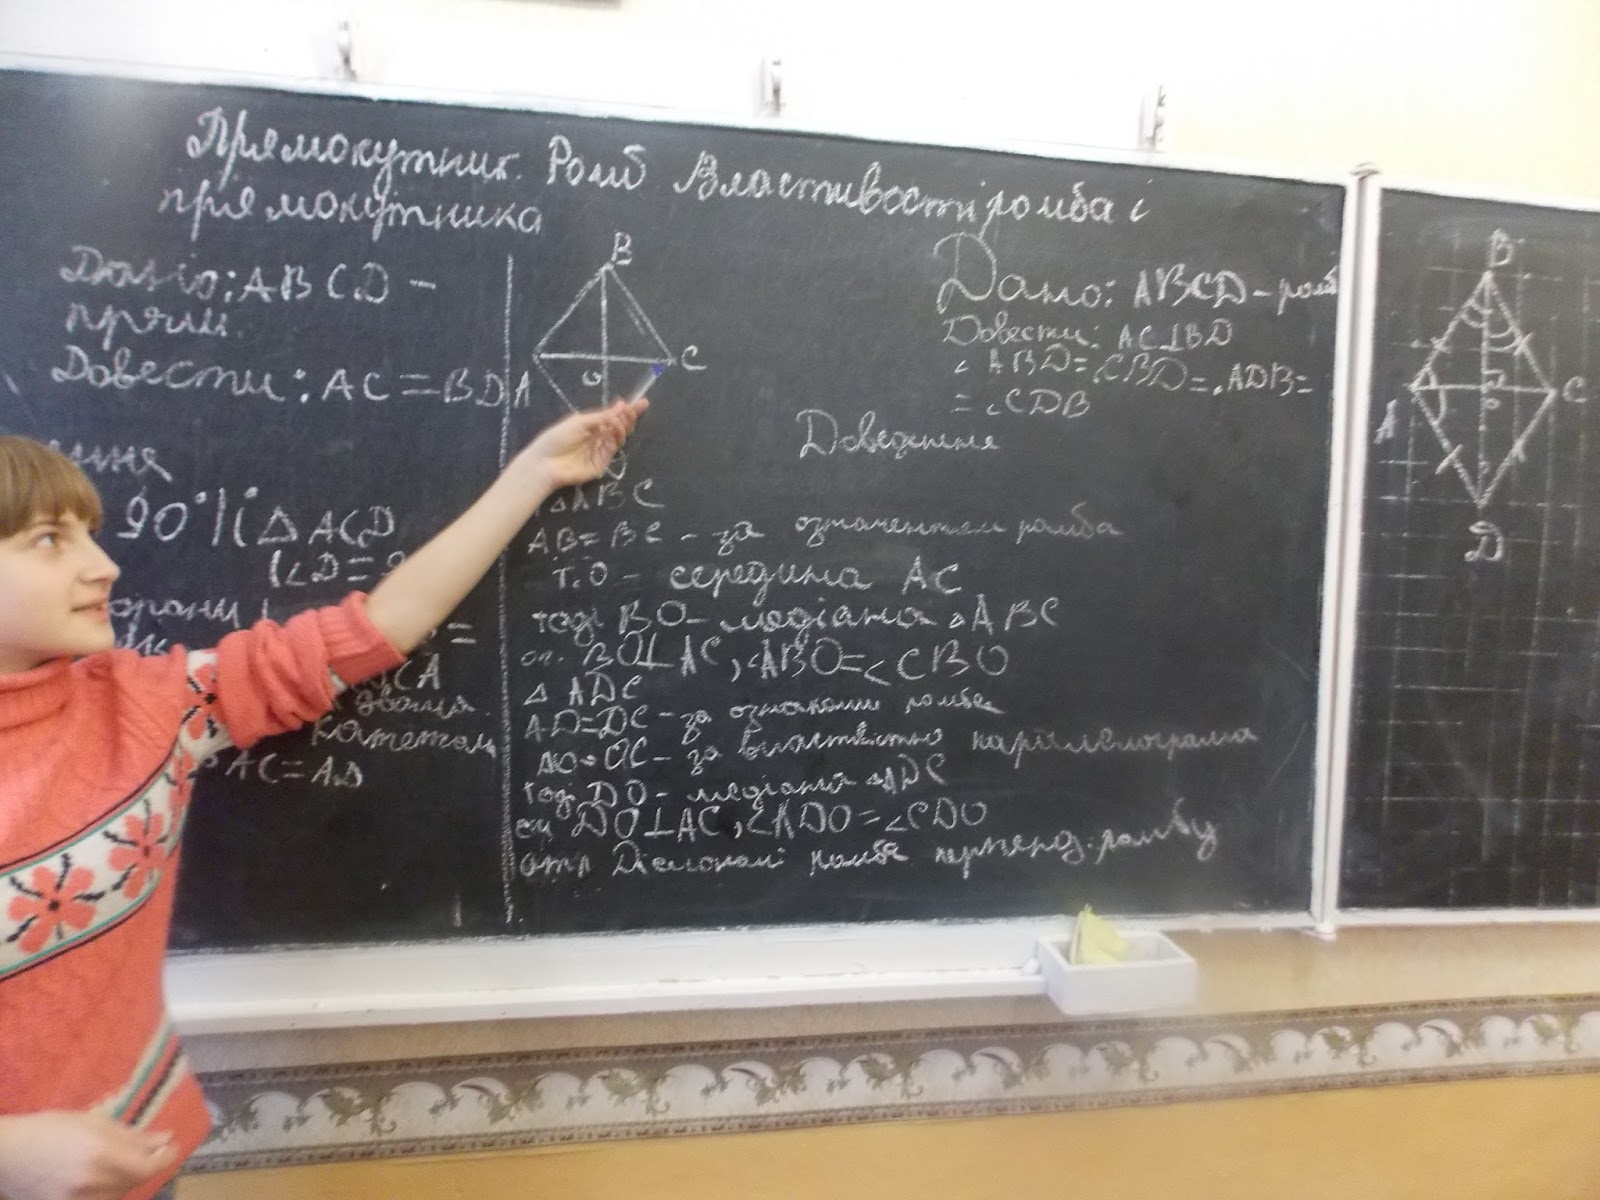 Прямокутник. Ромб Властивості ромба і
прямокутника
Дано: ABCD –
прям.
Довести: AC = BD
90° і △ ACD
∠D = 9
CA
двома
катетами
AC = AD
B
C
A
O
D
△ ABC
AB = BC – за означенням ромба
т. O – середина AC
тоді BO – медіана △ ABC
BO ⊥ AC, ∠ABO = ∠CBO
△ ADC
AD = DC – за ознакою ромба
AO = OC – за властивістю паралелограма
тоді DO – медіана △ ADC
DO ⊥ AC, ∠ADO = ∠CDO
отр Діагоналі ромба перпенд. ромбу
Дано: ABCD – ромб
Довести: AC ⊥ BD
∠ ABD = ∠CBD = ∠ADB =
= ∠CDB
Доведення
B
A
C
o
D